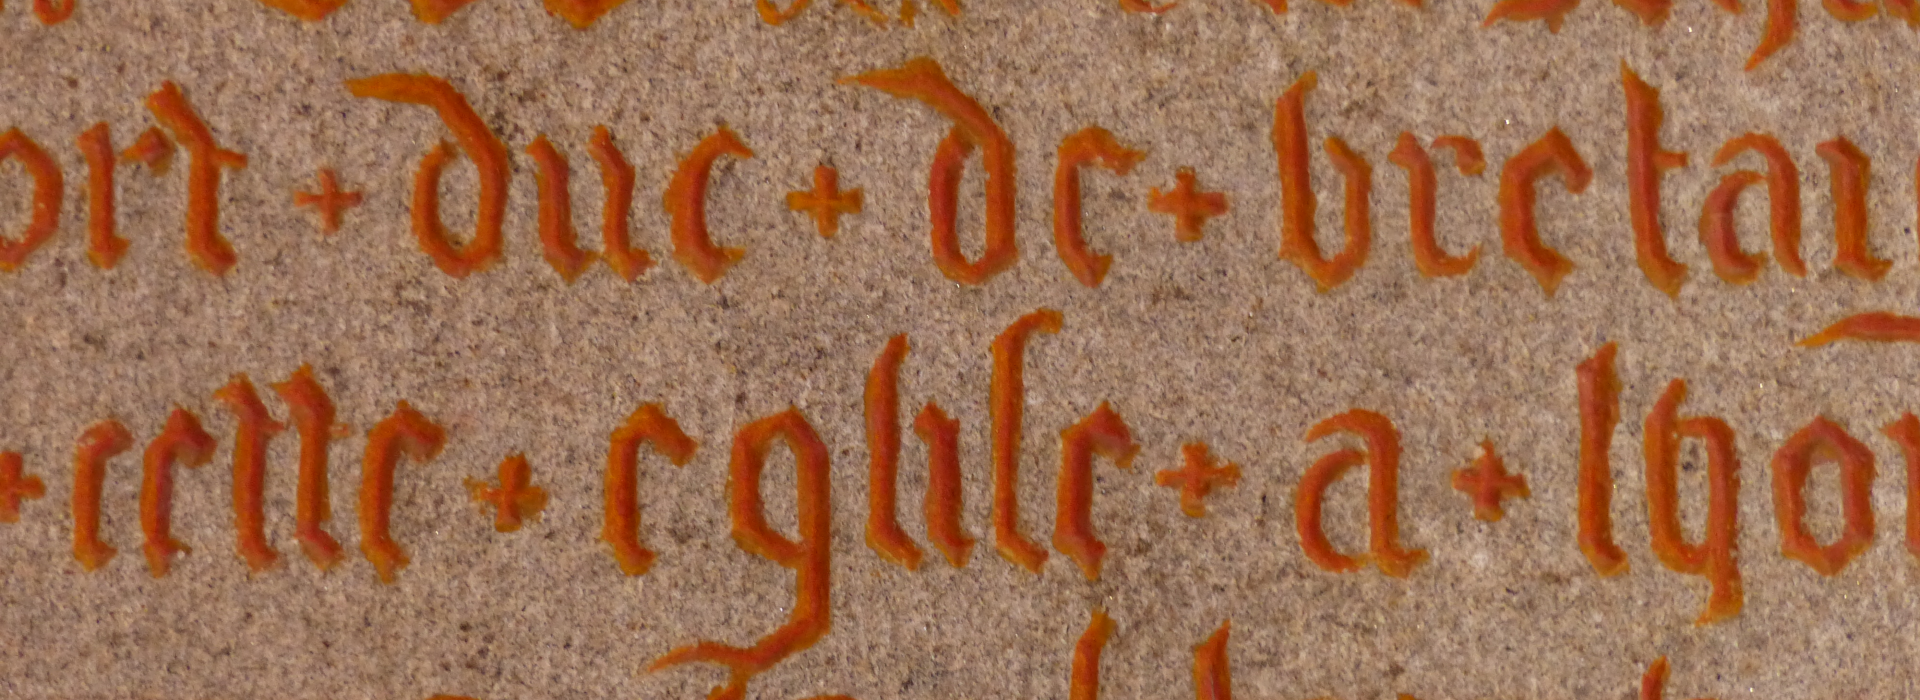 ort + duc + de + bretai
+ cette + eglise + a + lhon